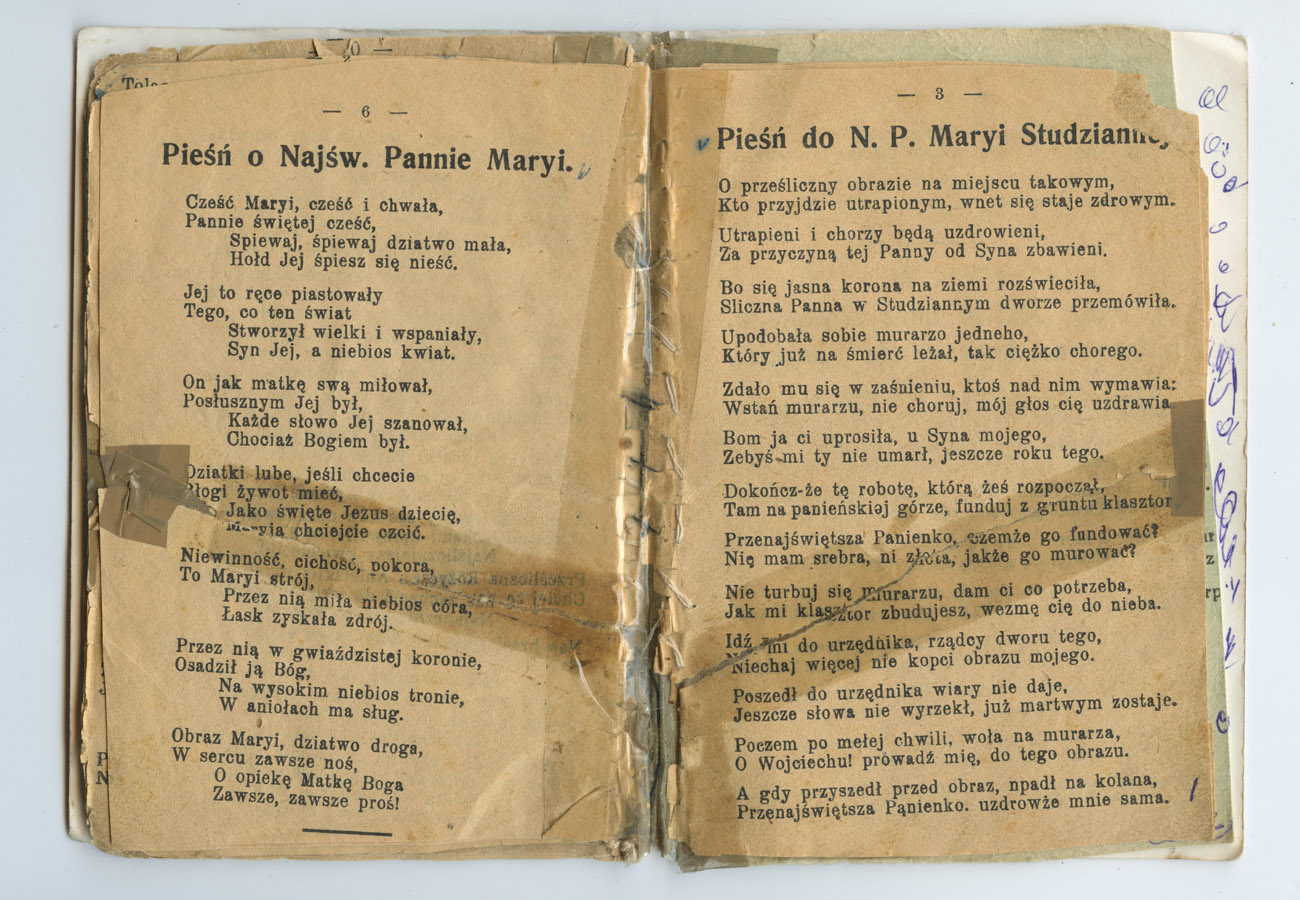 — 6 —
Pieśń o Najśw. Pannie Maryi.
Cześć Maryi, cześć i chwała,
Pannie świętej cześć,
Spiewaj, śpiewaj dziatwo mała,
Hołd Jej śpiesz się nieść.
Jej to ręce piastowały
Tego, co ten świat
Stworzył wielki i wspaniały,
Syn Jej, a niebios kwiat.
On jak matkę swą miłował,
Posłusznym Jej był,
Każde słowo Jej szanował,
Chociaż Bogiem był.
Dziatki lube, jeśli chcecie
Błogi żywot mieć,
Jako święte Jezus dziecię,
Maryją chciejcie czcić.
Niewinność, cichość, pokora,
To Maryi strój,
Przez nią miła niebios córa,
Łask zyskała zdrój.
Przez nią w gwiaździstej koronie,
Osadził ją Bóg,
Na wysokim niebios tronie,
W aniołach ma sług.
Obraz Maryi, dziatwo droga,
W sercu zawsze noś,
O opiekę Matkę Boga
Zawsze, zawsze proś!
— 3 —
Pieśń do N. P. Maryi Studziannej
O prześliczny obrazie na miejscu takowym,
Kto przyjdzie utrapionym, wnet się staje zdrowym.
Utrapieni i chorzy będą uzdrowieni,
Za przyczyną tej Panny od Syna zbawieni.
Bo się jasna korona na ziemi rozświeciła,
Sliczna Panna w Studziannym dworze przemówiła.
Upodobała sobie murarzo jedneho,
Który już na śmierć leżał, tak ciężko chorego.
Zdało mu się w zaśnieniu, ktoś nad nim wymawia:
Wstań murarzu, nie choruj, mój głos cię uzdrawia
Bom ja ci uprosiła, u Syna mojego,
Zebyś mi ty nie umarł, jeszcze roku tego.
Dokończ-że tę robotę, którą żeś rozpoczął,
Tam na panieńskiej górze, funduj z gruntu klasztor
Przenajświętsza Panienko, czemże go fundować?
Nię mam srebra, ni złota, jakże go murować?
Nie turbuj się murarzu, dam ci co potrzeba,
Jak mi klasztor zbudujesz, wezmę cię do nieba.
Idź mi do urzędnika, rządcy dworu tego,
Niechaj więcej nie kopci obrazu mojego.
Poszedł do urzędnika wiary nie daje,
Jeszcze słowa nie wyrzekł, już martwym zostaje.
Poczem po mełej chwili, woła na murarza,
O Wojciechu! prowadź mię, do tego obrazu.
A gdy przyszedł przed obraz, npadł na kolana,
Przęnajświętsza Pąnienko. uzdrowże mnie sama.